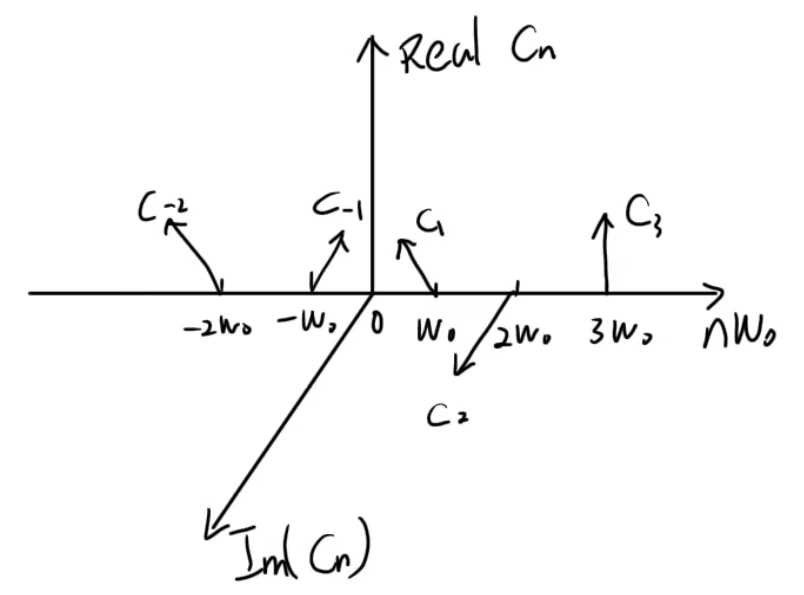 Real Cn
C-2
C-1
C1
C3
-2W0
-W0
0
W0
2W0
3W0
nW0
C2
Im(Cn)